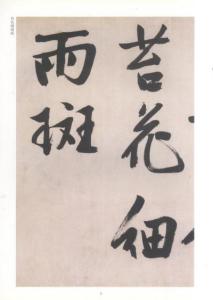 苔花細
雨斑